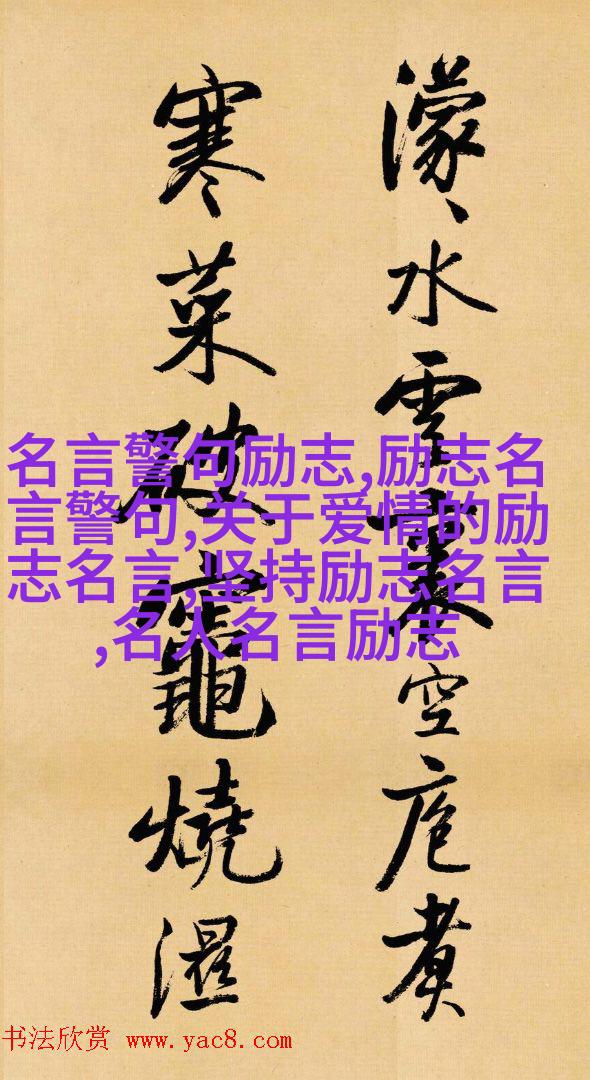 濛々水雲裏空庖煮
寒菜破竈燒濕
名言警句励志,励志名
言警句,关于爱情的励
志名言,坚持励志名言
,名人名言励志
书法欣赏 www.yac8.com